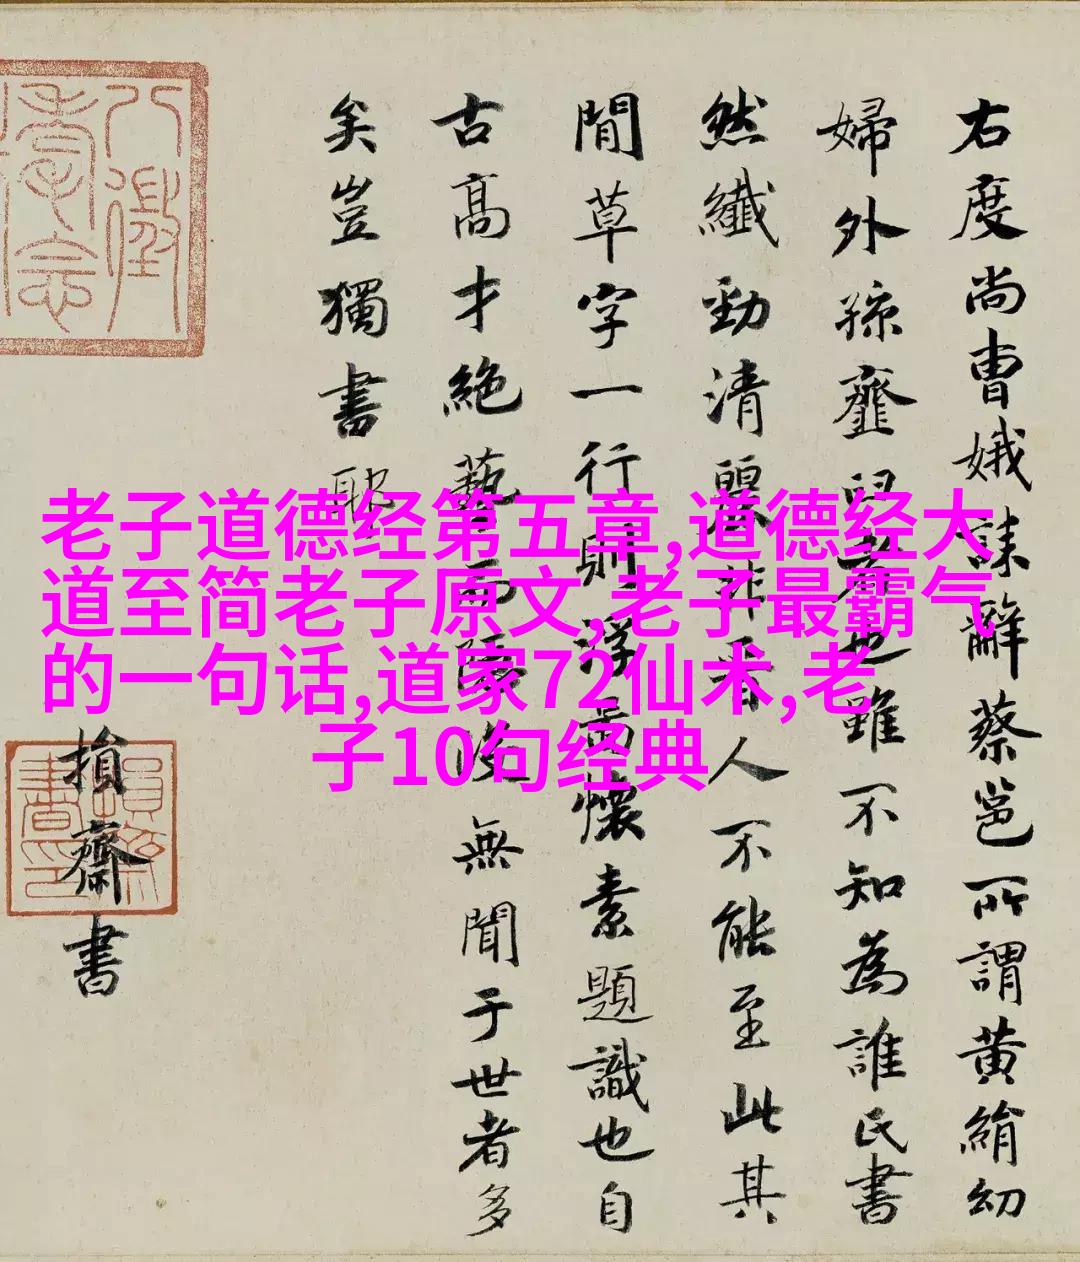 右度尚曹娥誄辭蔡邕所謂黄絹幼
婦外孫齏臼者也雖不知為誰氏書
然纖勁清麗非晉人不能至此其
閒草字一行則浮屠懷素題識也自
古高才絶藝而隱没無聞于世者多
矣豈獨書耶
損齋書
老子道德经第五章,道德经大
道至简老子原文,老子最霸气
的一句话,道家72仙术,老
子10句经典